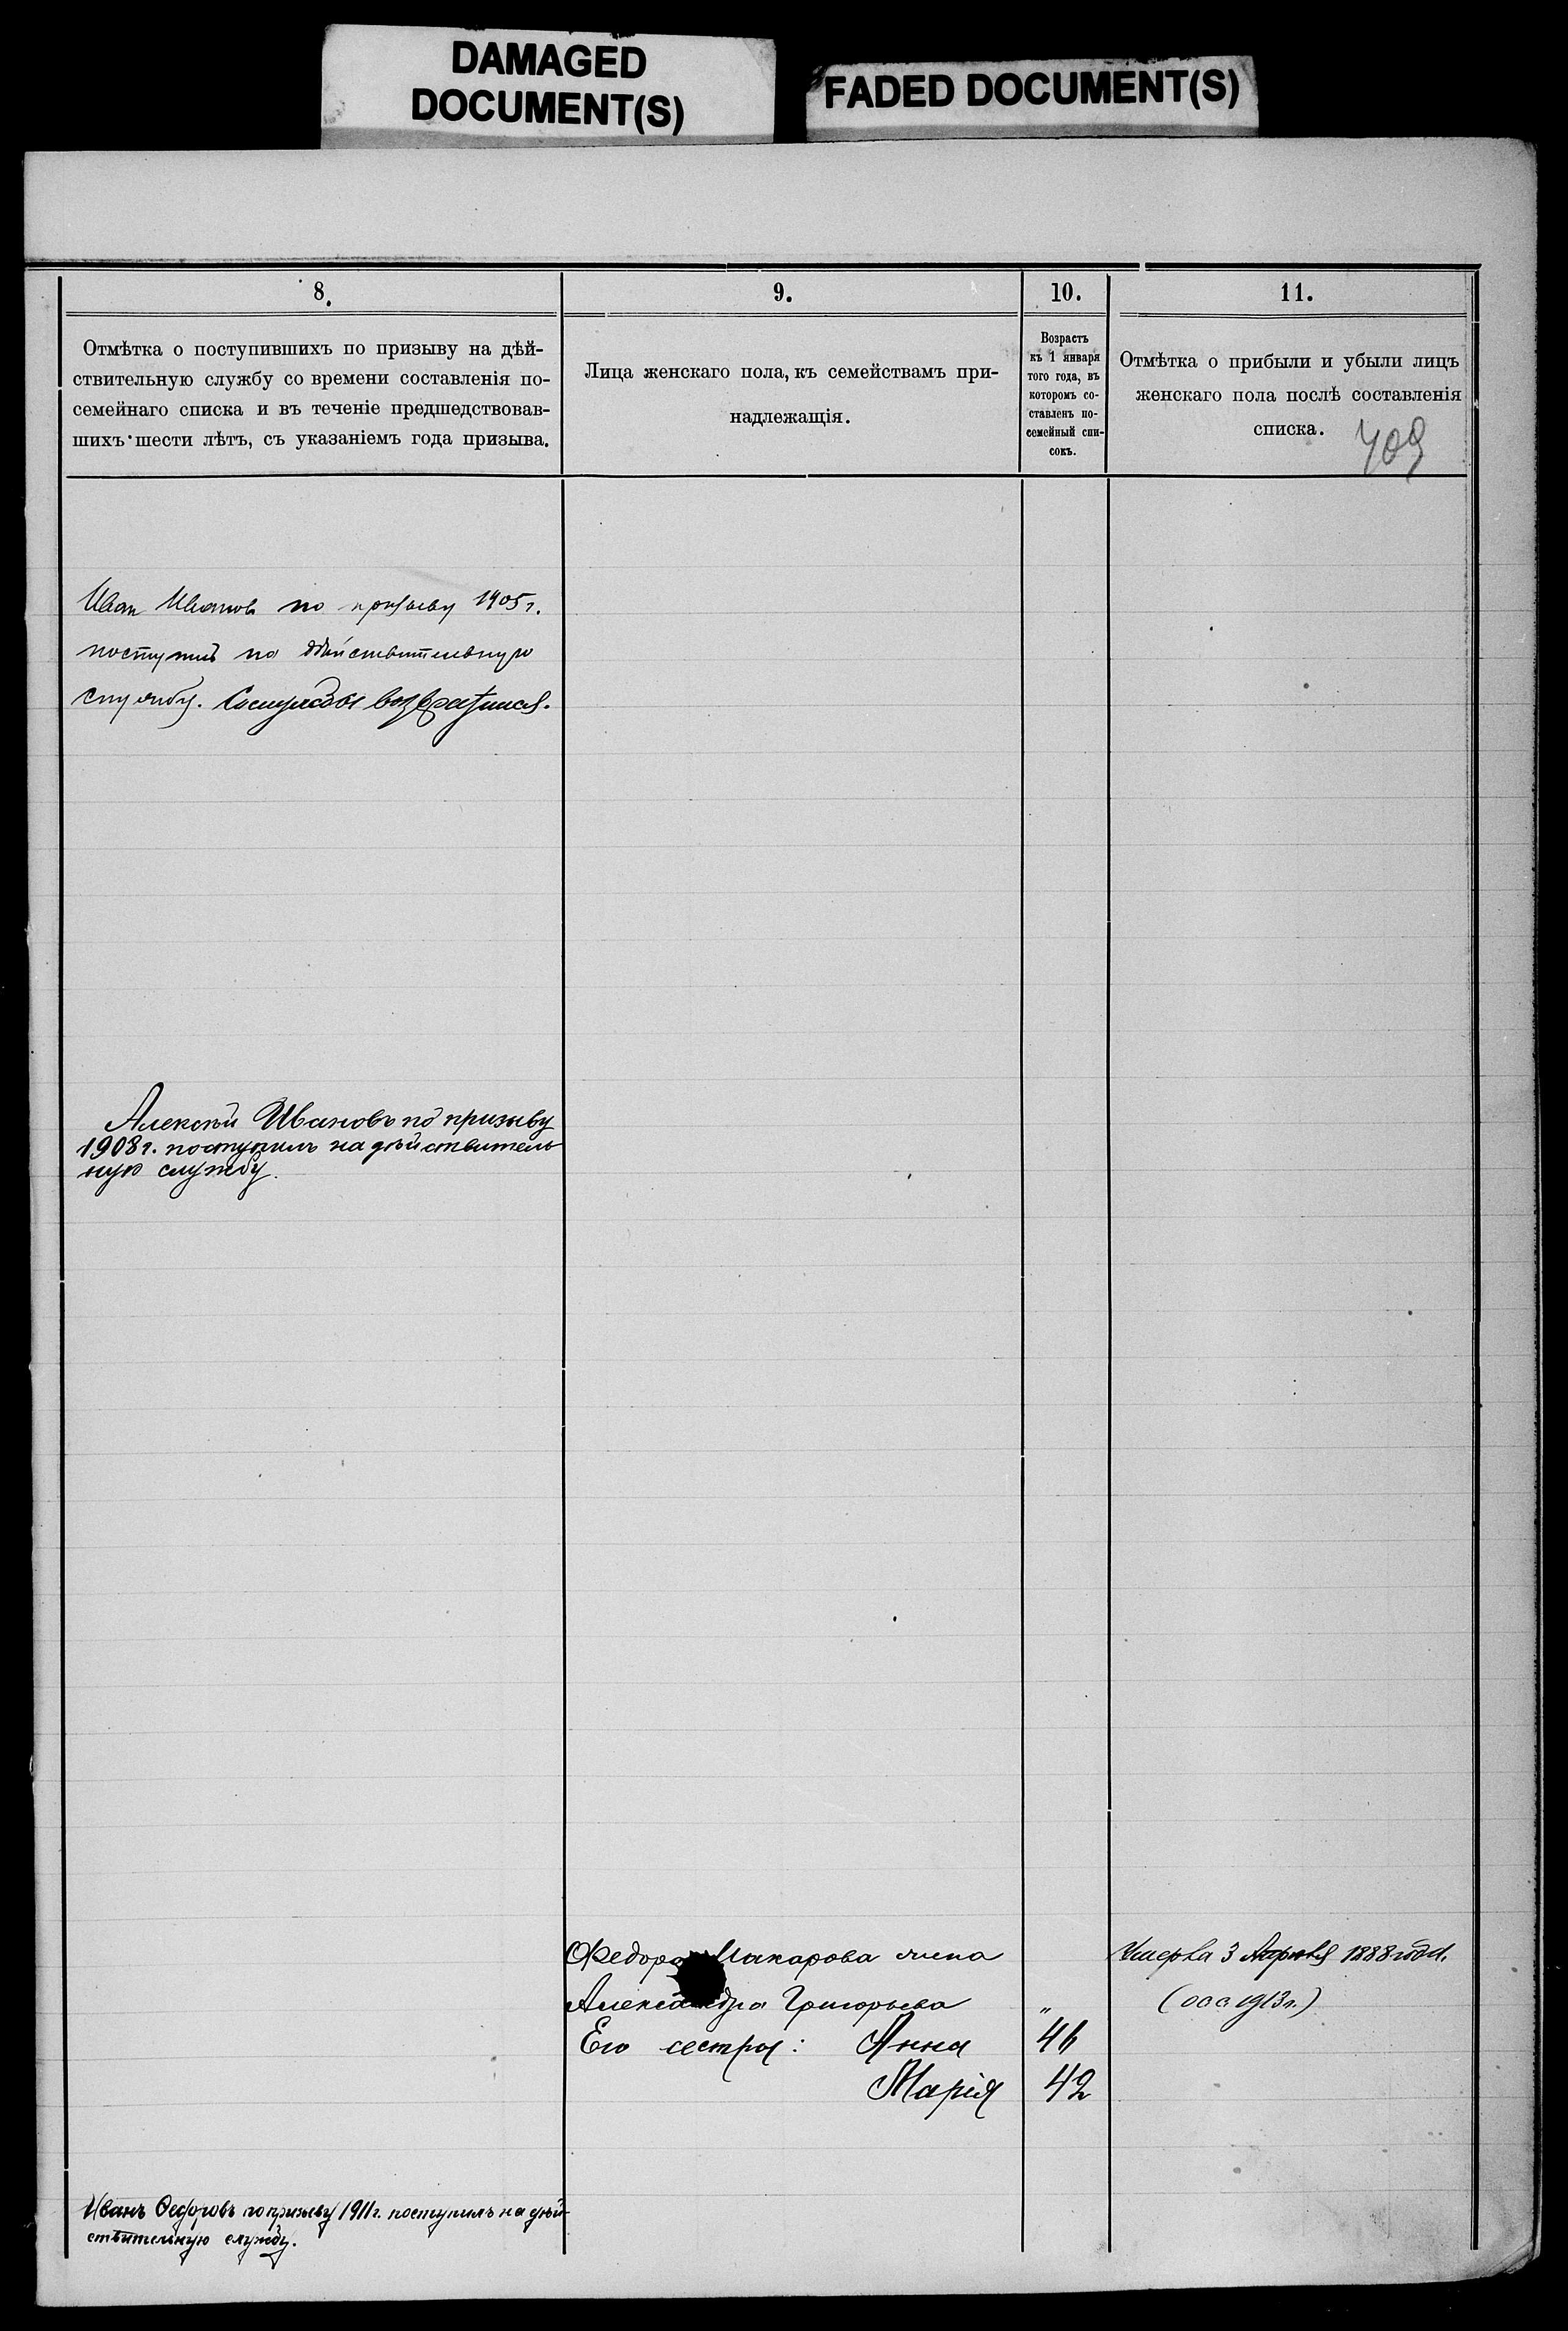 DAMAGED
DOCUMENT(S)
FADED DOCUMENT(S)
8.
Отмѣтка о поступившихъ по призыву на дѣй-
ствительную службу со времени составленія по-
семейнаго списка и въ теченіе предшедствовав-
шихъ шести лѣтъ, съ указаніемъ года призыва.
9.
Лица женскаго пола, къ семействамъ при-
надлежащія.
10.
Возрастъ
къ 1 января
того года, въ
которомъ со-
ставленъ по-
семейный спи-
сокъ.
11.
Отмѣтка о прибыли и убыли лицъ
женскаго пола послѣ составленія
списка.
409
Иван Иванов по призыву 1905 г.
поступилъ на дѣйствительную
службу. Со службы возвратился.
Алексѣй Ивановъ по призыву
1908 г. поступилъ на дѣйствитель
ную службу.
Федора Макарова жена
Александра Григорьева "
Его сестры: Анна 46
Марія 42
Умерла 3 Апрѣля 1888 года.
1913 г.)
Иванъ Ѳедоровъ по призыву 1911 г. поступилъ на дѣй-
ствительную службу.